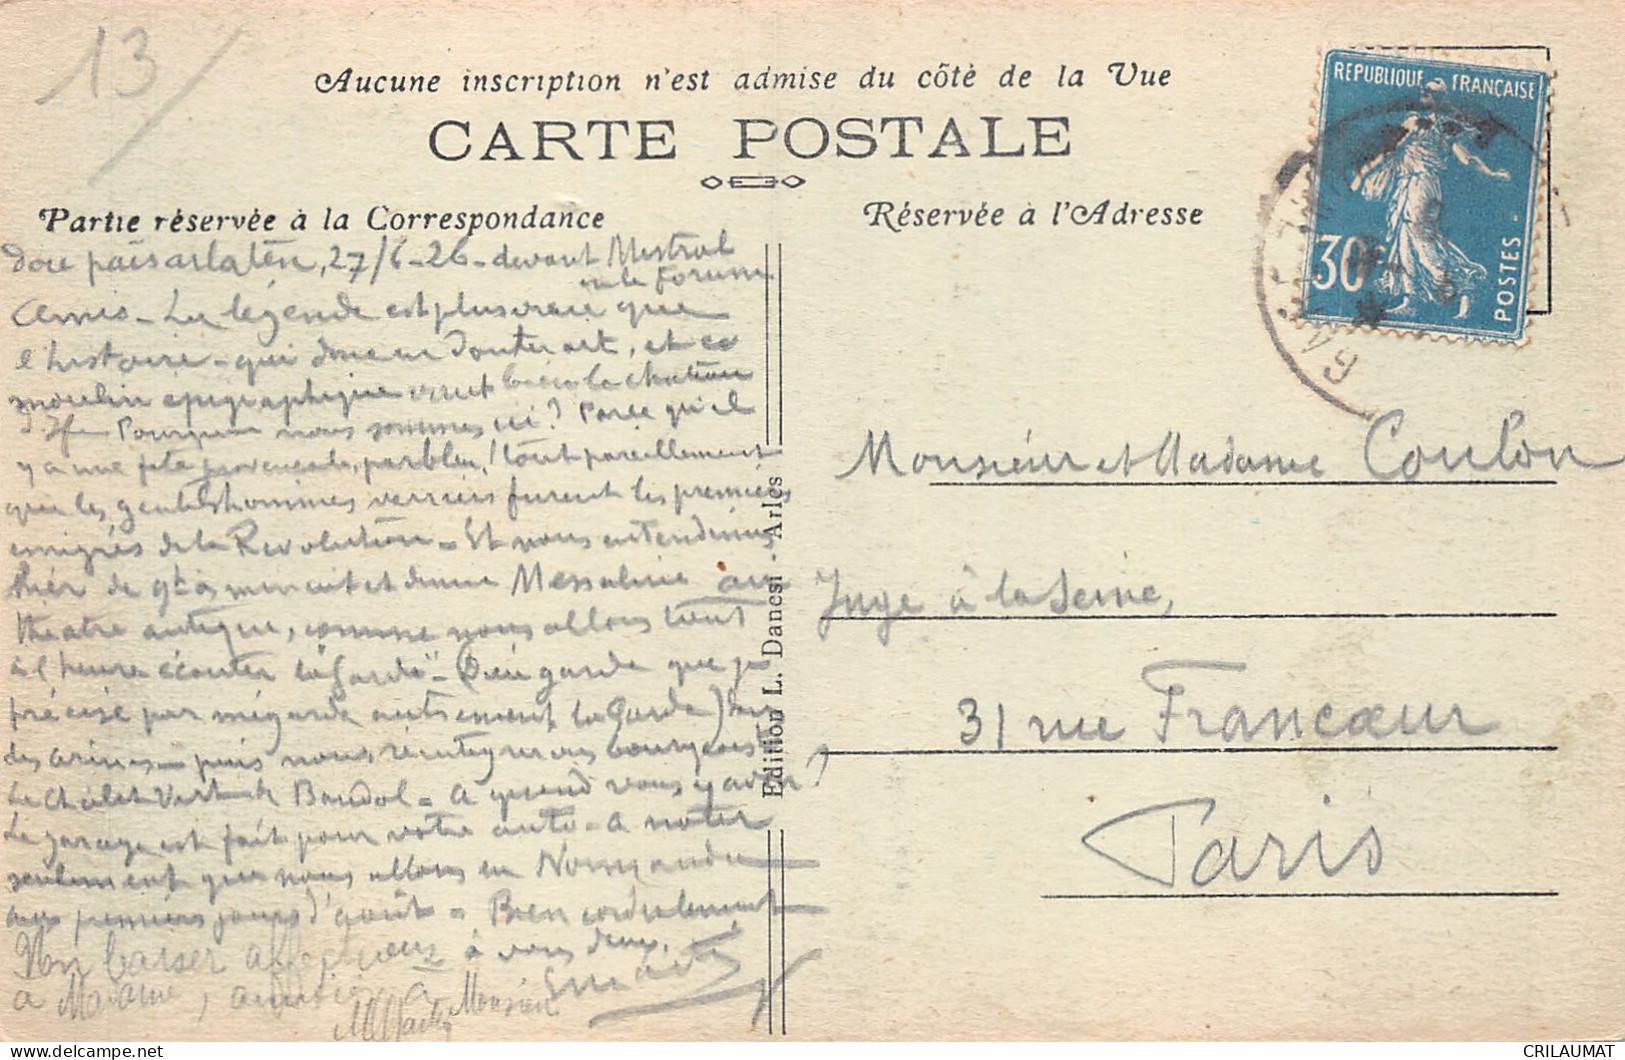 13
Aucune inscription n'est admise du côté de la Vue
CARTE POSTALE
Partie réservée à la Correspondance
Réservée à l'Adresse
REPUBLIQUE FRANÇAISE
30
POSTES
27/6-26 - devant Mistral
Forum
Amis - La légende est plus vraie que
l'histoire - qui donc en douterait, et ce
moulin épigraphique vaut bien le château
d'If - Pourquoi nous sommes ici? Parce qu'il
y a une fête provençale, parbleu! tout pareillement
que les gentilshommes verriers furent les premiers
émigrés de la Révolution - Et nous entendîmes
hier de 9h à minuit et demie Messaline au
théâtre antique, comme nous allons tout
à l'heure écouter "la Garde" - (bien garde que je
précise par mégarde autrement la Garde) dans
des arènes - puis nous réintégrerons bourgeoist
le Châlet Vert de Bandol - A quand vous y avoir?
Le garage est fait pour votre auto - A noter
seulement que nous allons en Normandie
aux premiers jours d'août - Bien cordialement
à vous deux,
Mon baiser affectueux
à Madame, à Monsieur
Edition L. Danesi - Arles
Monsieur et Madame Coulon
Juge à la Seine,
31 rue Francœur
Paris
CRILAUMAT